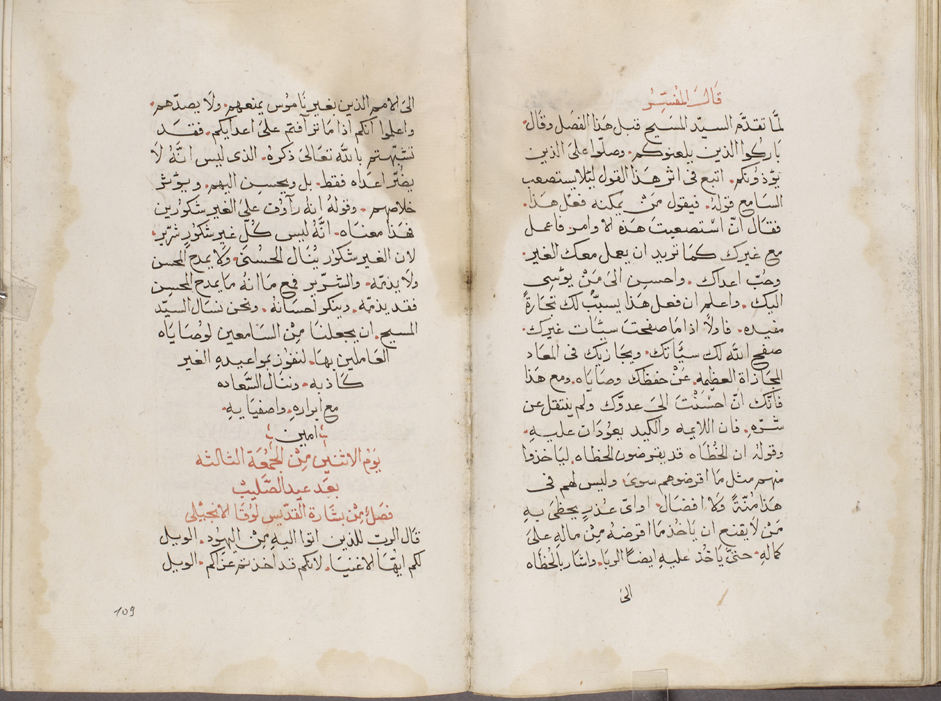 قال المفسر
لمّا تقدّم السيّد المسيح قبل هذا الفصل وقال٠
باركوا الذين يلعنوكم٠ وصلّوا على الذين
يؤذونكم٠ اتبع في اثر هذا القول ليلا يستصعب
السامع قوله٠ فيقول مَنْ يمكنه فعل هذا٠
فقال انّ اسْتصعبت هذه الاوامر فاعمل
مع غيرك كما تريد ان يعمل معك الغير٠
وحبّ اعداك٠ واحسن الى مَنْ يوسى
اليك٠ واعلم ان فعل هذا يسبّب لك تجارةً
مفيده٠ فاولاً اذا ما صفحت سيّات غيرك٠
صفح الله لك سيّاتك٠ ويجازيك في المعاد
المجازاة العظيمه٠ عَنْ حفظك وصاياه٠ ومع هذا
فانّك انّ احْسَنْتَ الى عدوّك ولم ينتقل عن
شرّهِ٠ فان اللايمه والكيد يعودان عليه٠
وقوله ان الخطاه قد يقرضون الخطاه ليأخذوا
منهم مثل ما اقرضوهم سوى٠ وليس لهم في
هذا منّةً ولا افضال٠ اوايّ عذرٍ يحظى بهِ
مَنْ لا يقنع ان ياخذ ما اقرضهُ مِنْ مالهِ على
كمالهِ٠ حتى ياخذ عليهِ ايضاً الربا٠ واشار بالخطاه
الى
الى الامم الذين بغير ناموس يمنعهم٠ ولا يصدّهم٠
واعلموا انكم اذا ما ترآفتم على اعدايكم٠ فقد
تشبّهتم بالله تعالى ذكره٠ الذي ليس انّهُ لا
يضرّ اعداه فقط٠ بل ويحسن اليهم٠ ويؤثر
خلاصهم٠ وقوله انه رآوف على الغير شكورين
فهذا معناه٠ انّهُ ليس كلّ غير شكورٍ شرير٠
لان الغير شكور ينال الحسنى٠ ولا يمدح المحسن
ولا يذمّه٠ والشرير فمع ما انه ما يمدح المحسن
فقد يذمّه٠ وينكر احسانه٠ ونحن نسال السيّد
المسيح٠ ان يجعلنا مِنْ السامعين لوصاياه
العاملين بها٠ لنفوز بمواعيدهِ الغير
كاذبه٠ وننال السعاده
مع ابراره٠ واصفيايهِ٠
امين
يوم الاثنين مِنْ الجمُعَة الثالثه
بعد عيد الصَّليبْ
فصلٌ مِنْ بشارة القدّيس لوقا الانجيلي
قال الربّ للذين اتوا اليهِ مِنَ اليهود٠ الويل
لكم ايّها الاغنيا٠ لانكم قد اخذتم عزاكم٠ الويل
109